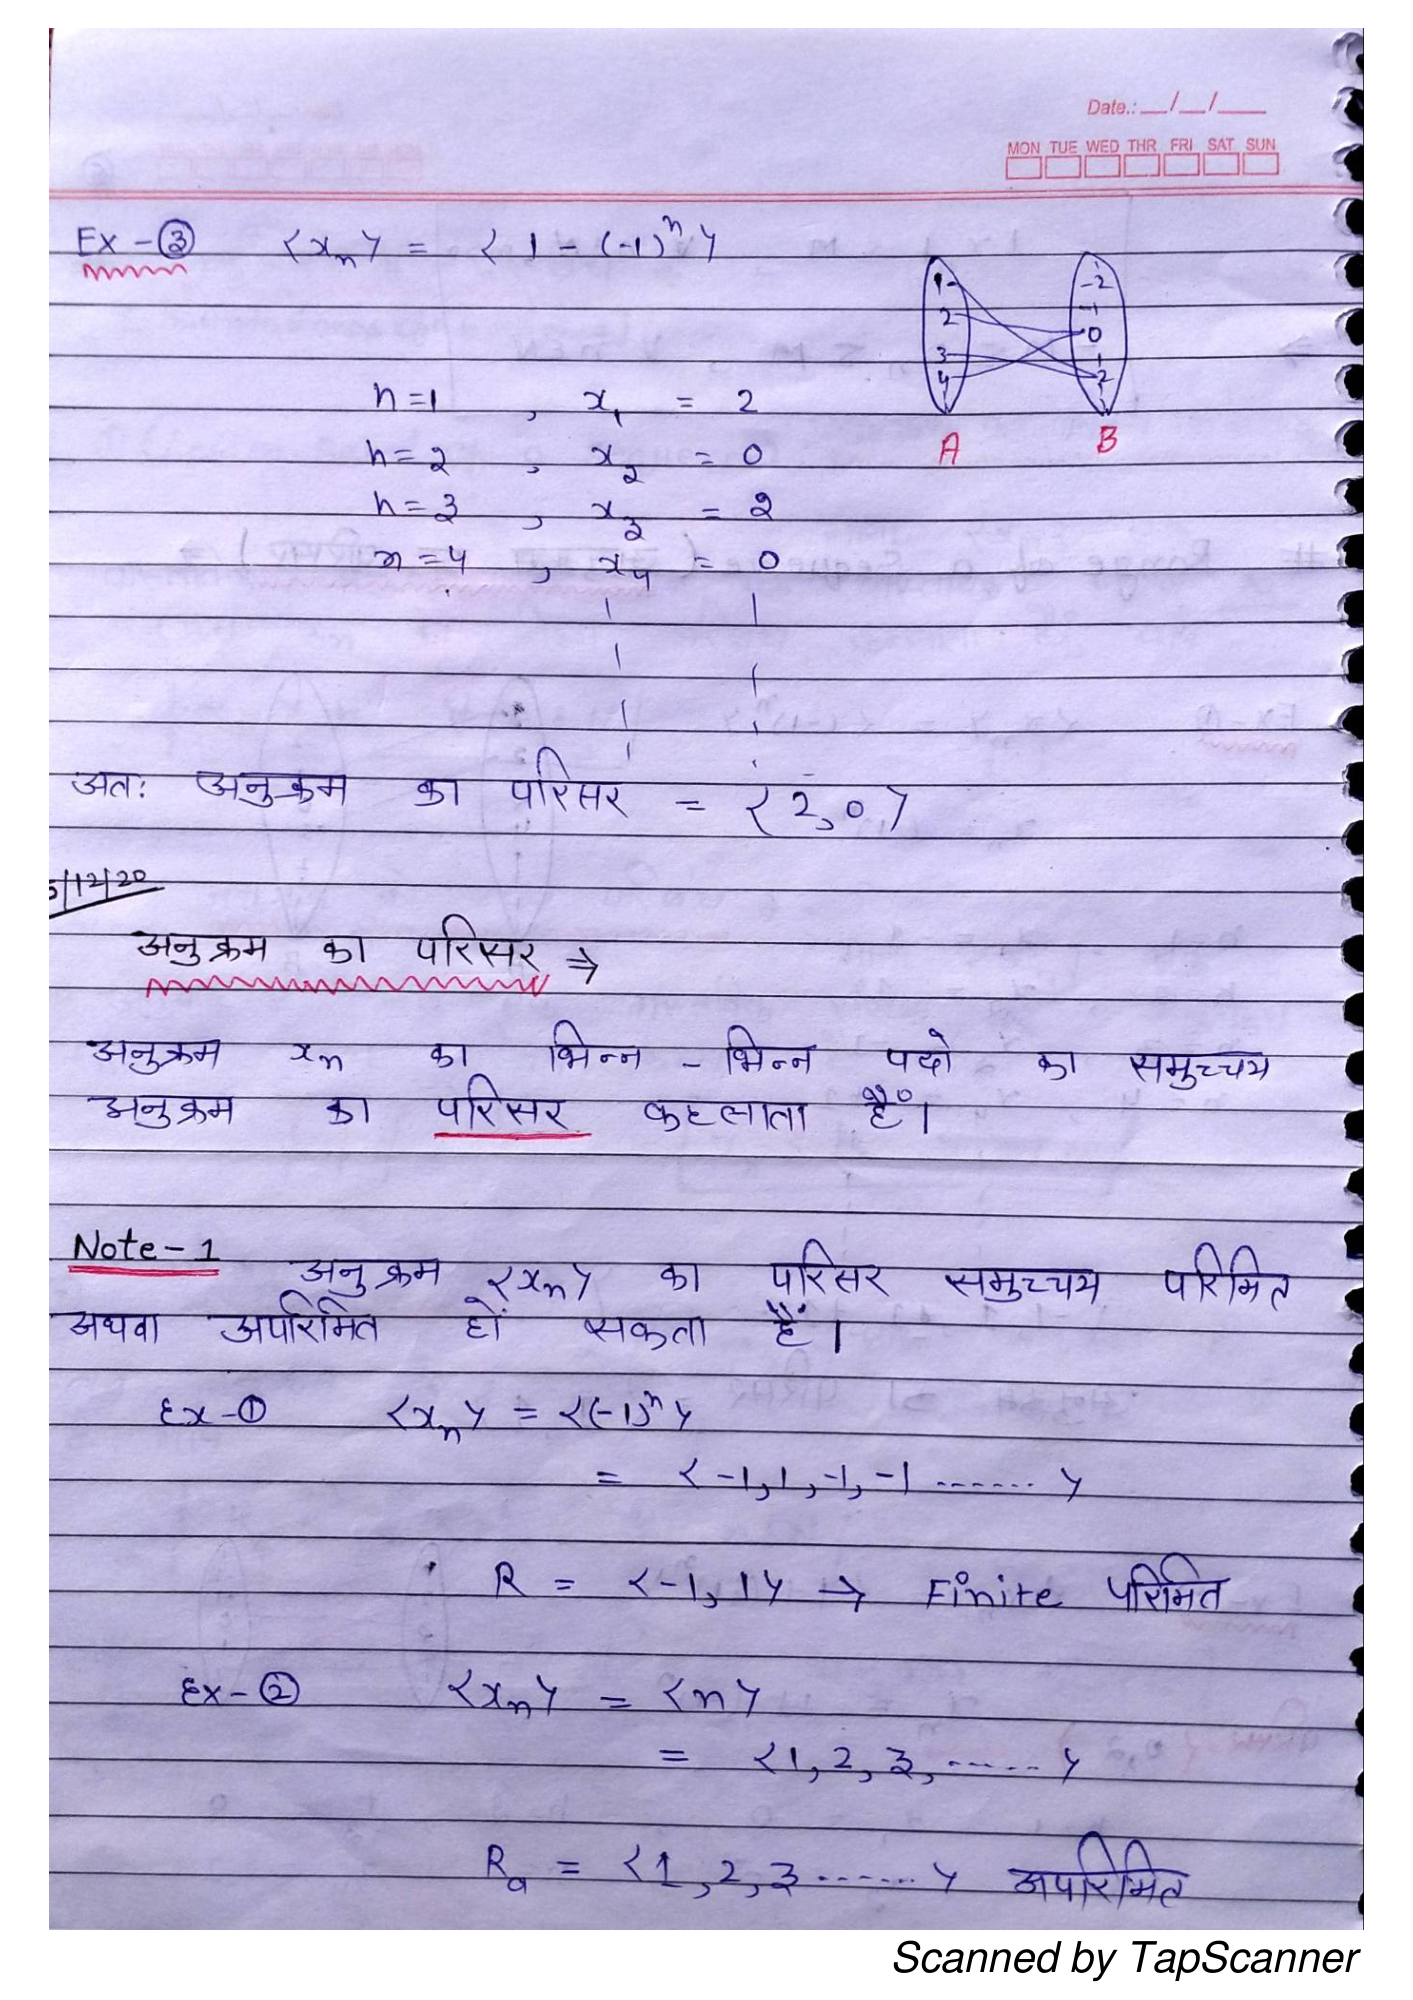 Date.: __/__/___
MON TUE WED THR FRI SAT SUN
Ex-③ <xₙ> = < 1 - (-1)ⁿ >
1 -2
2 -1
0
3 1
4 2
A B
n=1 , x₁ = 2
n=2 , x₂ = 0
n=3 , x₃ = 2
n=4 , x₄ = 0
अतः अनुक्रम का परिसर = < 2, 0 >
/12/20
अनुक्रम का परिसर ⇒
अनुक्रम xₙ का भिन्न - भिन्न पदो का समुच्चय
अनुक्रम का परिसर कहलाता हैं।
Note-1 अनुक्रम <xₙ> का परिसर समुच्चय परिमित
अथवा अपरिमित हों सकता हैं।
Ex-① <xₙ> = <(-1)ⁿ>
= < -1, 1, -1, -1 ....... >
R = < -1, 1 > → Finite परिमित
Ex-② <xₙ> = <n>
= < 1, 2, 3, ...... >
Rₐ = < 1, 2, 3 ....... > अपरिमित
Scanned by TapScanner